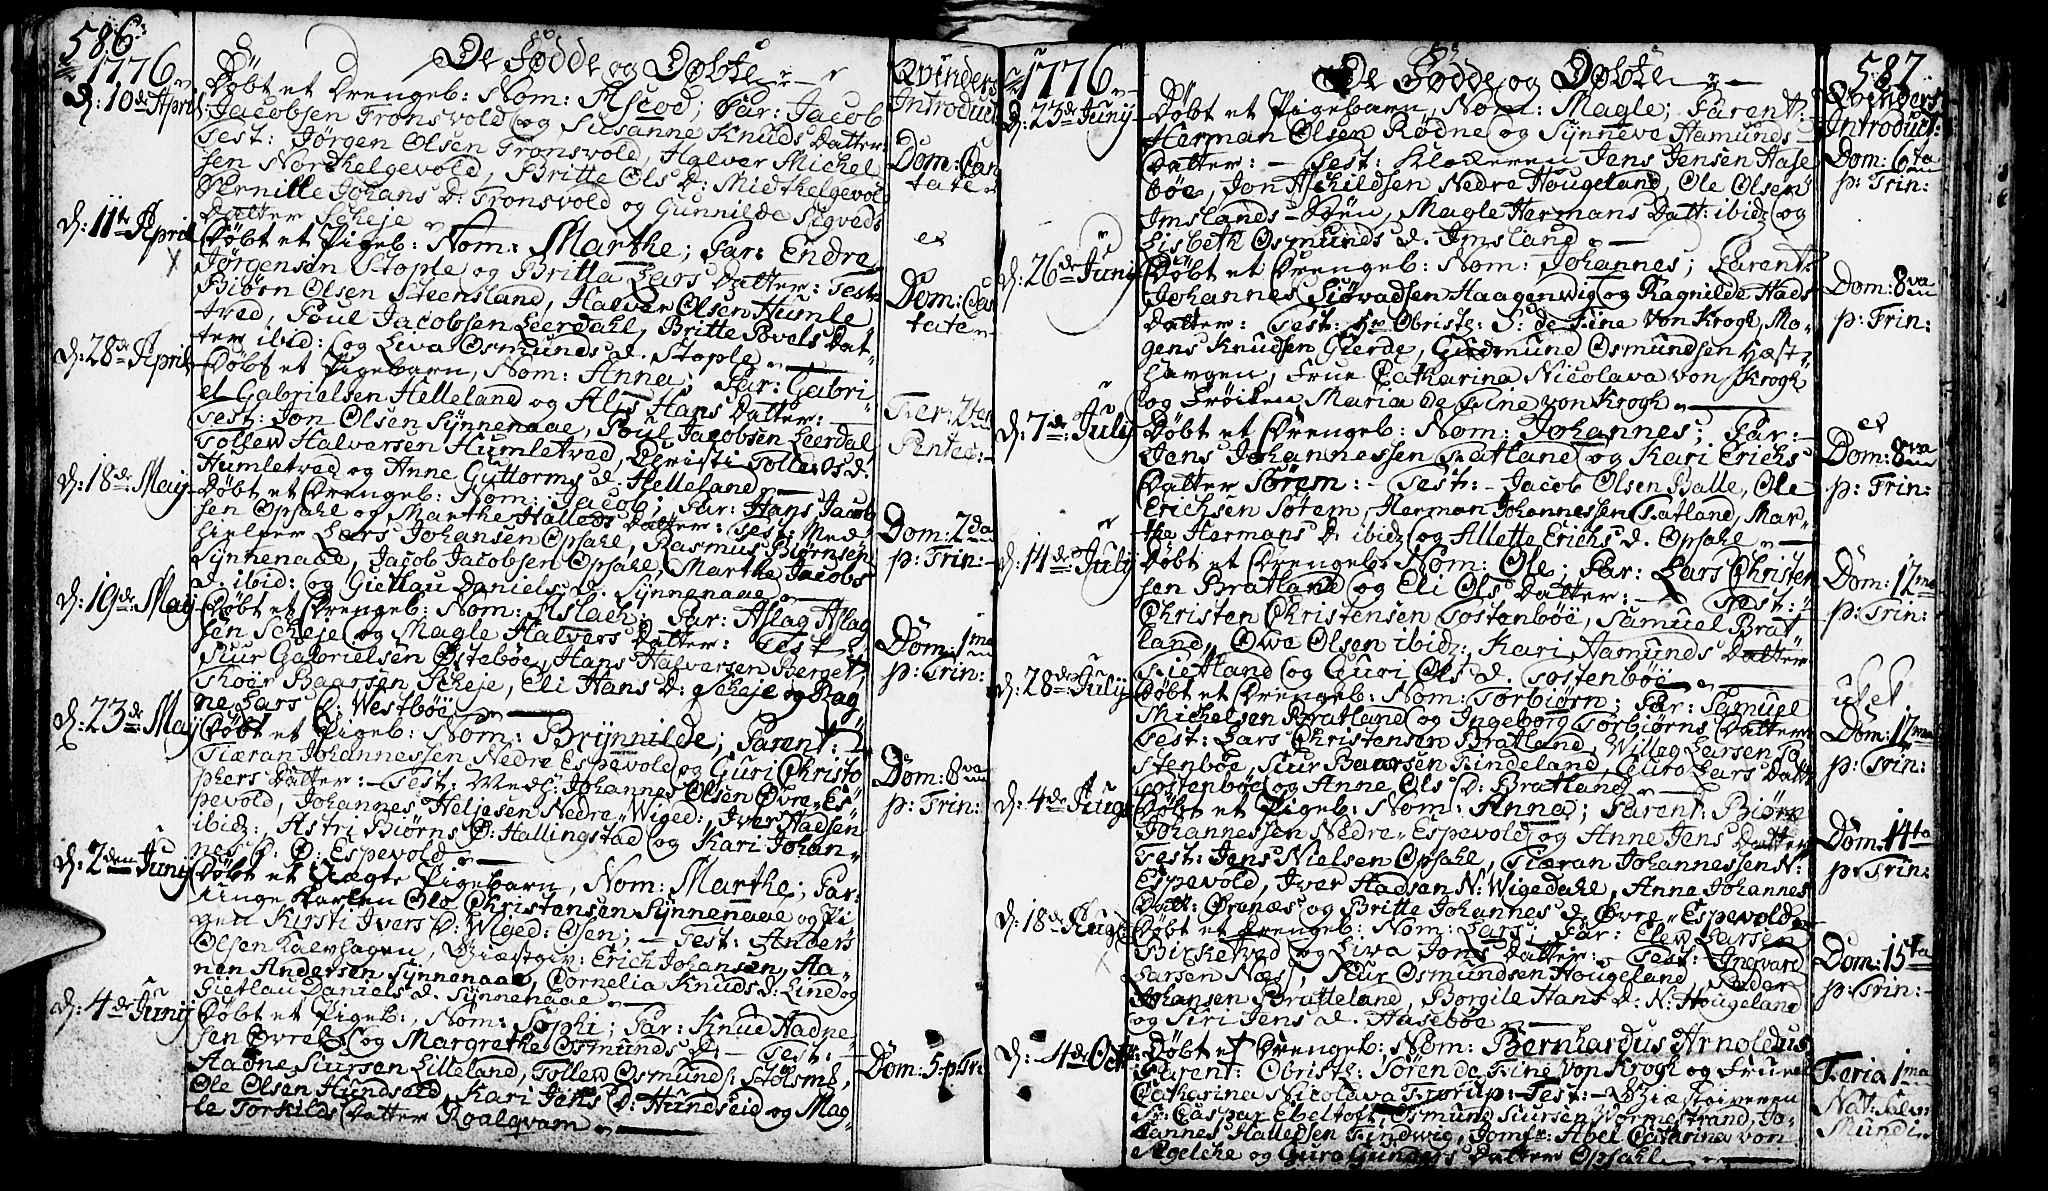 586.
1776
De Födde og Döbte
Qvinders
Introduct
d: 10de April
Döbt et Drengeb: Nom: Ascod; Far: Jacob
Jacobsen Tronsvold og Susanne Knuds Datter:
Test: Jörgen Olsen Tronsvold, Halver Michel
sen Nordhelgevold, Britte Ols D: Midthelgevold
Pernille Johans D: Tronsvold og Gunnilde Sigvads
Datter Scheje
Dom: Can
tate
d: 11te April
Döbt et Pigeb: Nom: Marthe; Far: Endre
Jörgensen Stople og Britta Lars Datter: Test:
Biörn Olsen Steensland, Halver Olsen Humle
tvad, Poul Jacobsen Leerdahl, Britte Povels Dat-
ter ibid: og Liva Osmunds d. Stople
ex
Dom: Can
tate
d: 28de April
Döbt et Pigebarn, Nom: Anna; Far: Gabri-
el Gabrielsen Helleland og Alis Hans Datter:
Test: Jon Olsen Synnenaae, Poul Jacobsen Leerdal
Tollew Halversen Humletvad, Christi Tollews d:
Humletvad og Anne Guttorms d. Helleland
Fer: 2da
Pentec:
d: 18de Maij
Döbt et Drengeb: Nom: Jacob; Far: Hans Jacob
sen Opsahl og Marthe Halleds Datter: Test: Med-
hielper Lars Johansen Opsahl, Rasmus Biörnsen
Synnenaae, Jacob Jacobsen Opsahl, Marthe Jacobs
d. ibid: og Gietlau Daniels d. Synnenaae
Dom: 2da
p: Trin:
d: 19de Maij
Döbt et Drengeb: Nom: Aslach; Far: Aslag Aslag
sen Scheje og Magle Halvers Datter: Test:
Siur Gabrielsen Östeböe, Hans Halversen Berget,
Thoer Baarsen Scheje, Eli Hans D: Scheje og Rag
ne Lars D: Westböe
Dom: 1ma
p: Trin:
d: 23de Maij
Döbt et Pigeb: Nom: Brynnilde; Parent:
Tiæran Johannessen Nedre Espevold og Guri Christo
phers Datter: Test: Medh: Johannes Olsen Övre Es-
pevold, Johannes Heljesen Nedre Wiged:, Iver Hadsen
ibid:, Astri Biörns D: Hallingstad og Kari Johan-
nes D. Ö: Espevold
Dom: 8va
p: Trin:
d: 2den Junij
Döbt et Uægte Pigebarn, Nom: Marthe; Far:
Unge Karlen Ole Christensen Synnenaae og Pi
gen Kirsti Ivers D: Wiged: Test: Anders
Olsen Kalvhagen, Giæstgiv: Erich Johansen, Aa-
nen Andersen Synnenaae, Cornelia Knuds d: Lind og
Gietlau Daniels d. Synnenaae
d: 4de Junij
Döbt et Pigeb:, Nom: Sophi; Far: Knud Aadne-
sen Övreb: og Margrethe Osmunds d: Test:
Aadne Siursen Lilleland, Tollew Osmunds: Stölsmb,
Ole Olsen Hundseid, Kari Jens D: Hundseid og Mag-
le Torkilds Datter Roalqvam
Dom: 5. p: Tr:
1776
De Födde og Döbte
587.
Qvinders
Introduct:
d: 23de Junij
Döbt et Pigebarn, Nom: Magle; Parent:
Herman Olsen Rödne og Synneve Hamunds
Datter: Test: Klockeren Jens Jensen Hase
böe, Jon Aschildsen Nedre Hougeland, Ole Olsen
Imslands-Söen, Magle Hermans Datt: ibid: og
Lisbeth Osmunds d. Imsland
Dom: 6ta
p: Trin:
d: 26de Junij
Döbt et Drengeb: Nom: Johannes; Parent:
Johannes Siövadsen Haagenwig og Ragnilde Hads
Datter: Test: Hr Obristl: S: de Fine von Krogh, Mo-
gens Knudsen Gierde, Gudmund Osmundsen Hæst-
hangen, Frue Catharina Nicolava von Krogh
og Fröiken Maria de Fine von Krogh
Dom: 8va
p: Trin:
d: 7de Julij
Döbt et Drengeb: Nom: Johannes; Far:
Jens Johannessen Ratland og Kari Erichs
Datter Sörem: Test: Jacob Olsen Balle, Ole
Erichsen Sötem, Herman Johannessen Ratland, Mar-
the Hermans D: ibid: og Allette Erichs d. Opsahl
ex
Dom: 8va
p: Trin:
d: 14de Julij
Döbt et Drengeb: Nom: Ole; Far: Lars Christen
sen Bratland og Eli Ols Datter: Test:
Christen Christensen Tostenböe, Samuel Brat
land, Owe Olsen ibid:, Kari Aamunds Datter
Fietland og Guri Ols d. Tostenböe
Dom: 12ma
p: Trin:
d: 28de Julij
Döbt et Drengeb: Nom: Torbiörn; Far: Samuel
Michelsen Bratland og Ingeborg Torbiörns Datter
Test: Lars Christensen Bratland, Willeg Larsen To
stenböe, Siur Baarsen Tindeland, Guro Lars Datt:
Tostenböe og Anne Ols D: Bratland
ut et
Dom: 12ma
p: Trin:
d: 4de Augs
Döbt et Pigeb: Nom: Anna; Parent: Biörn
Johannessen Nedre Espevold og Anne Jens Datter
Test: Jens Nielsen Opsahl, Tiæran Johannessen N:
Espevold, Iver Hadsen N: Wigedahl, Anna Johannes
Datt: Örenæs og Britte Johannes d. Övre Espevold
Dom: 14ta
p: Trin:
d: 18de Augs
Döbt et Drengeb: Nom: Lars; Far: Elew Larsen
Birketvad og Liva Jons Datter: Test: Ingvard
Larsen Næs, Siur Osmundsen Hougeland, Peder
Johansen Bratteland, Borgile Hans d: N: Hougeland
og Siri Jens d. Haseböe
Dom: 15ta
p: Trin:
d: 4de Octr:
Döbt et Drengeb: Nom: Bernhardus Arnoldus
Parent: Obristl: Sören de Fine von Krogh og Frue
Catharina Nicolava Frorup: Test: Giæstgiveren
Sr: Caspar Ebeltoft, Osmund Siursen Wormestrand, Jo-
hannes Halledsen Tindwig, Jomfr: Abel Catarina von
Mgelche og Guro Gunders Datter Opsahl
Feria 1ma
Nat: Salv:
Mundi